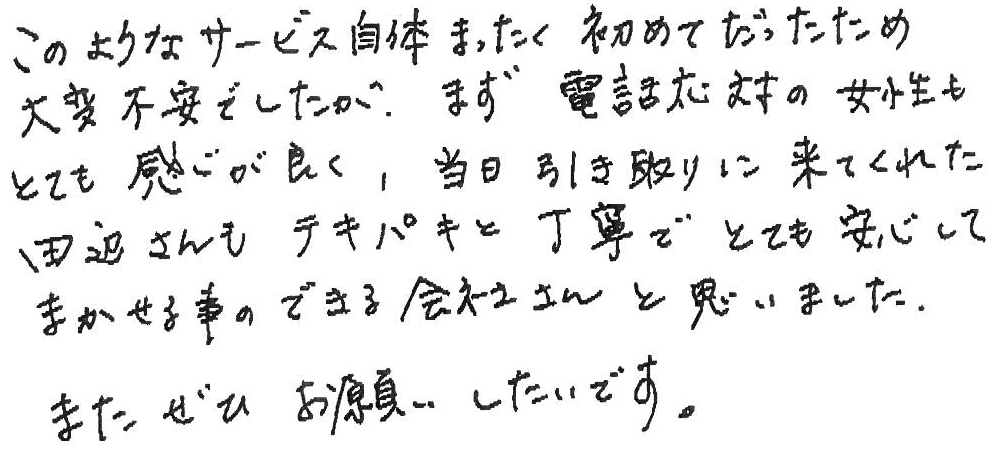 このようなサービス自体まったく初めてだったため
大変不安でしたが、まず電話応対の女性も
とても感じが良く,当日引き取りに来てくれた
田辺さんもテキパキと丁寧でとても安心して
まかせる事のできる会社さんと思いました.
またぜひお願いしたいです。